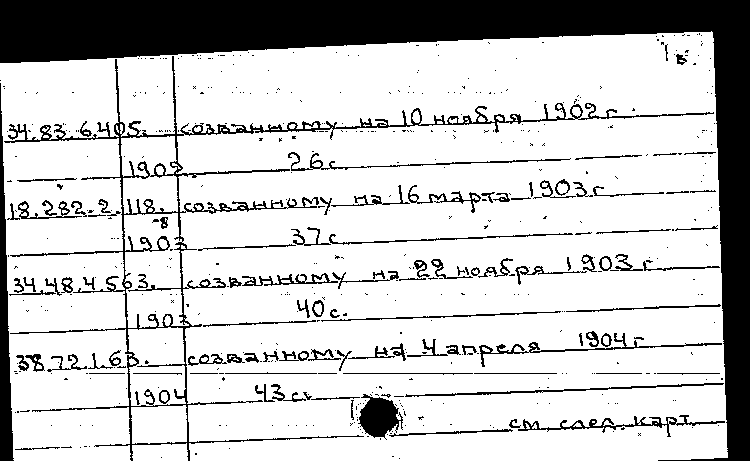 1в.
34.83.6.405. созванному на 10 ноября 1902 г.
1902 26 с.
18.282.2.118. созванному на 16 марта 1903 г
-8
1903 37 с
34.48.4.563. созванному на 22 ноября 1903 г
1903 40 с.
38.72.1.63. созванному на 4 апреля 1904 г
1904 43 с.
см. след. карт.